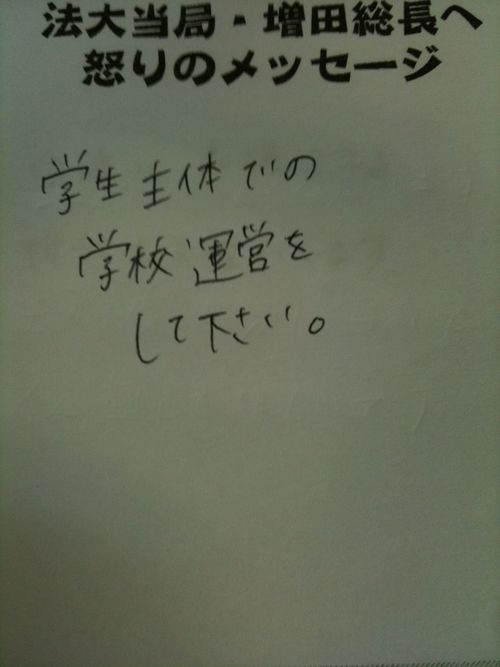 法大当局・増田総長へ
怒りのメッセージ
学生主体での
学校運営を
して下さい。